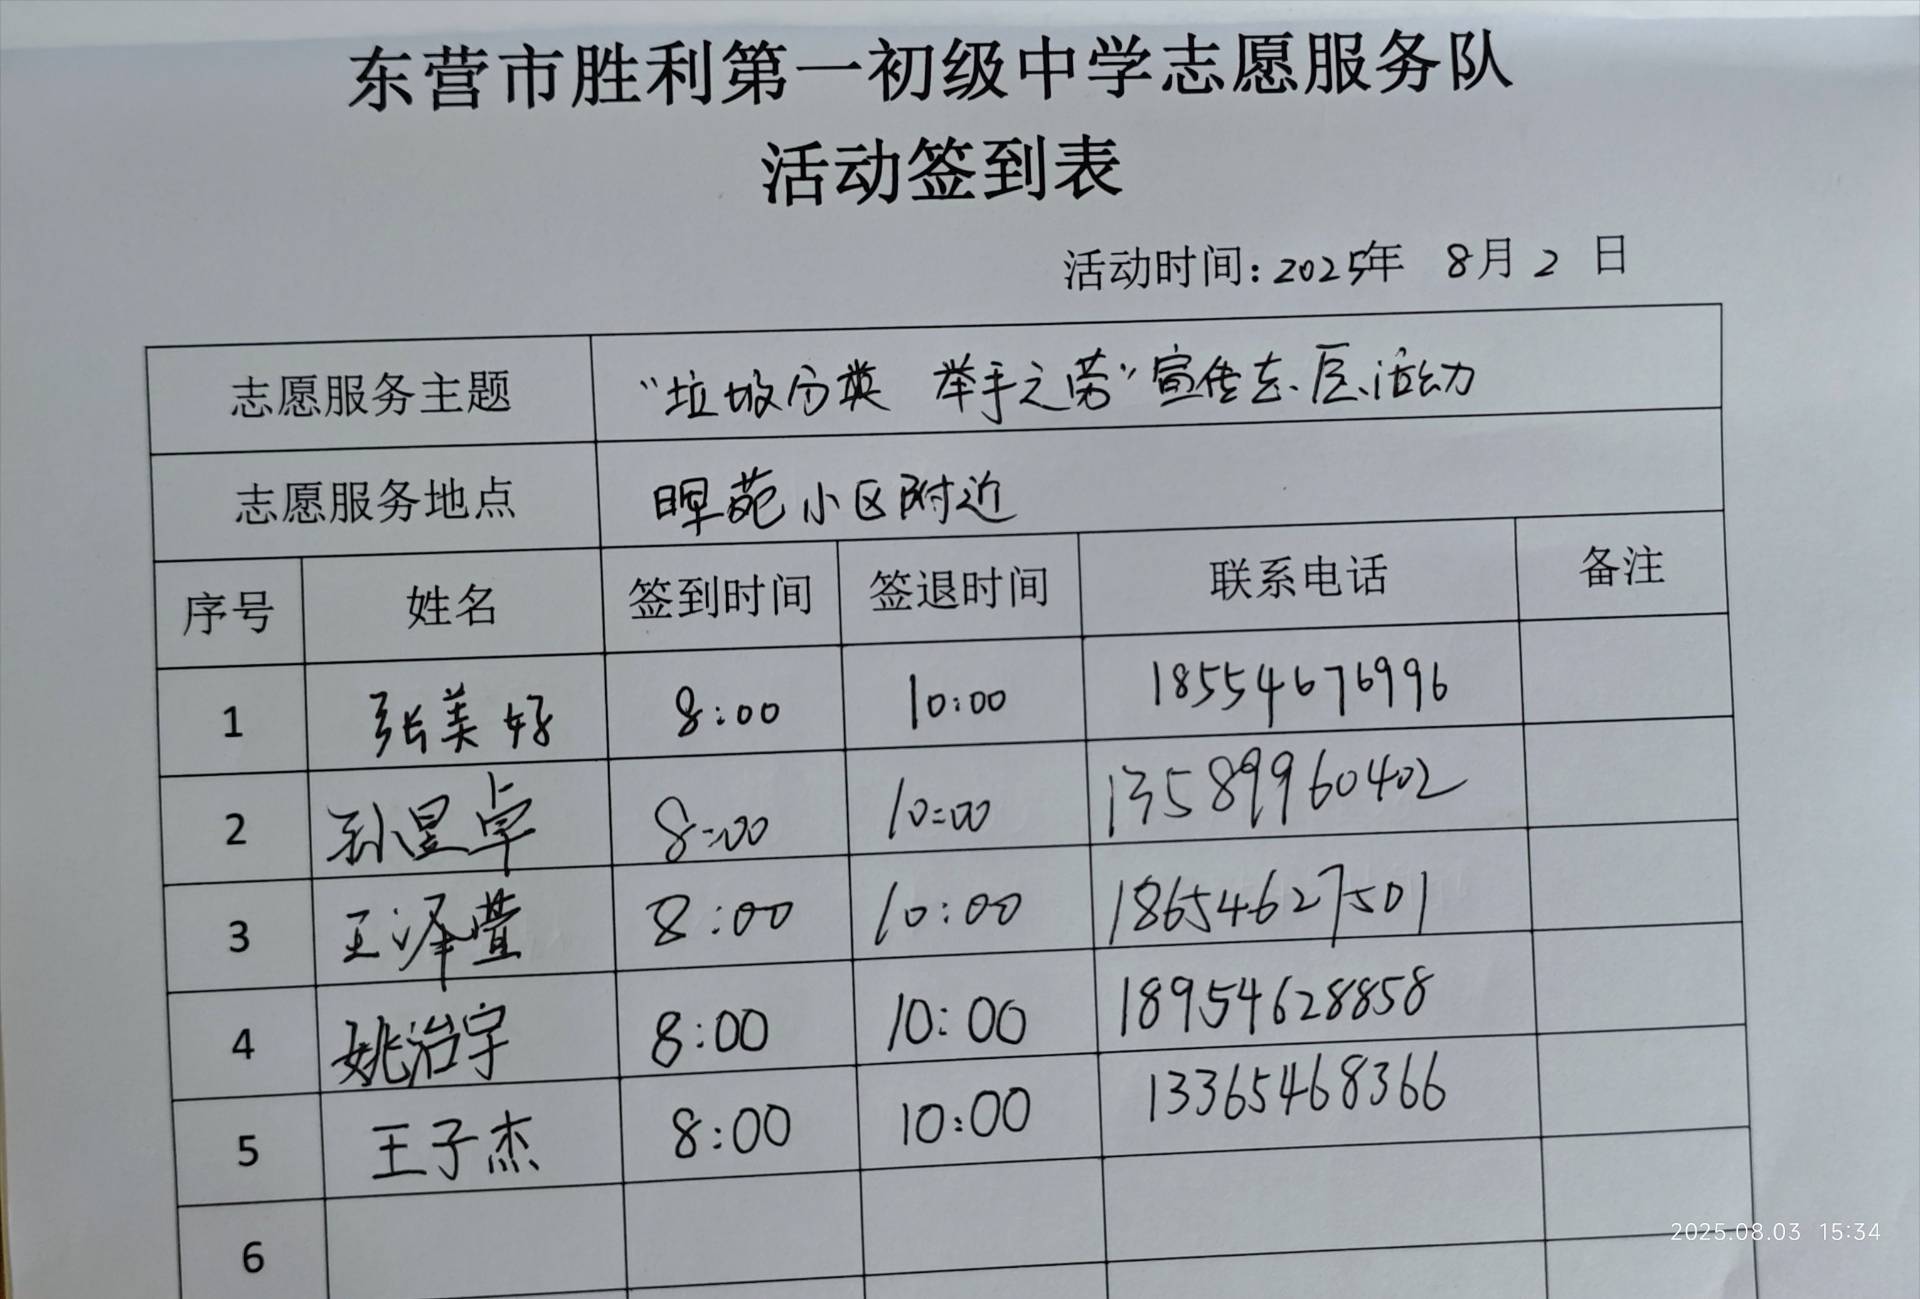 东营市胜利第一初级中学志愿服务队
活动签到表
活动时间：2025年 8月 2 日
志愿服务主题 “垃圾分类 举手之劳”宣传志愿活动
志愿服务地点 小区附近
序号 姓名 签到时间 签退时间 联系电话 备注
1 张美好 8:00 10:00 18554676996
2 孙昱卓 8:00 10:00 13589960402
3 王泽萱 8:00 10:00 18654627501
4 姚治宇 8:00 10:00 18954628858
5 王子杰 8:00 10:00 13365468366
6
2025.08.03 15:34